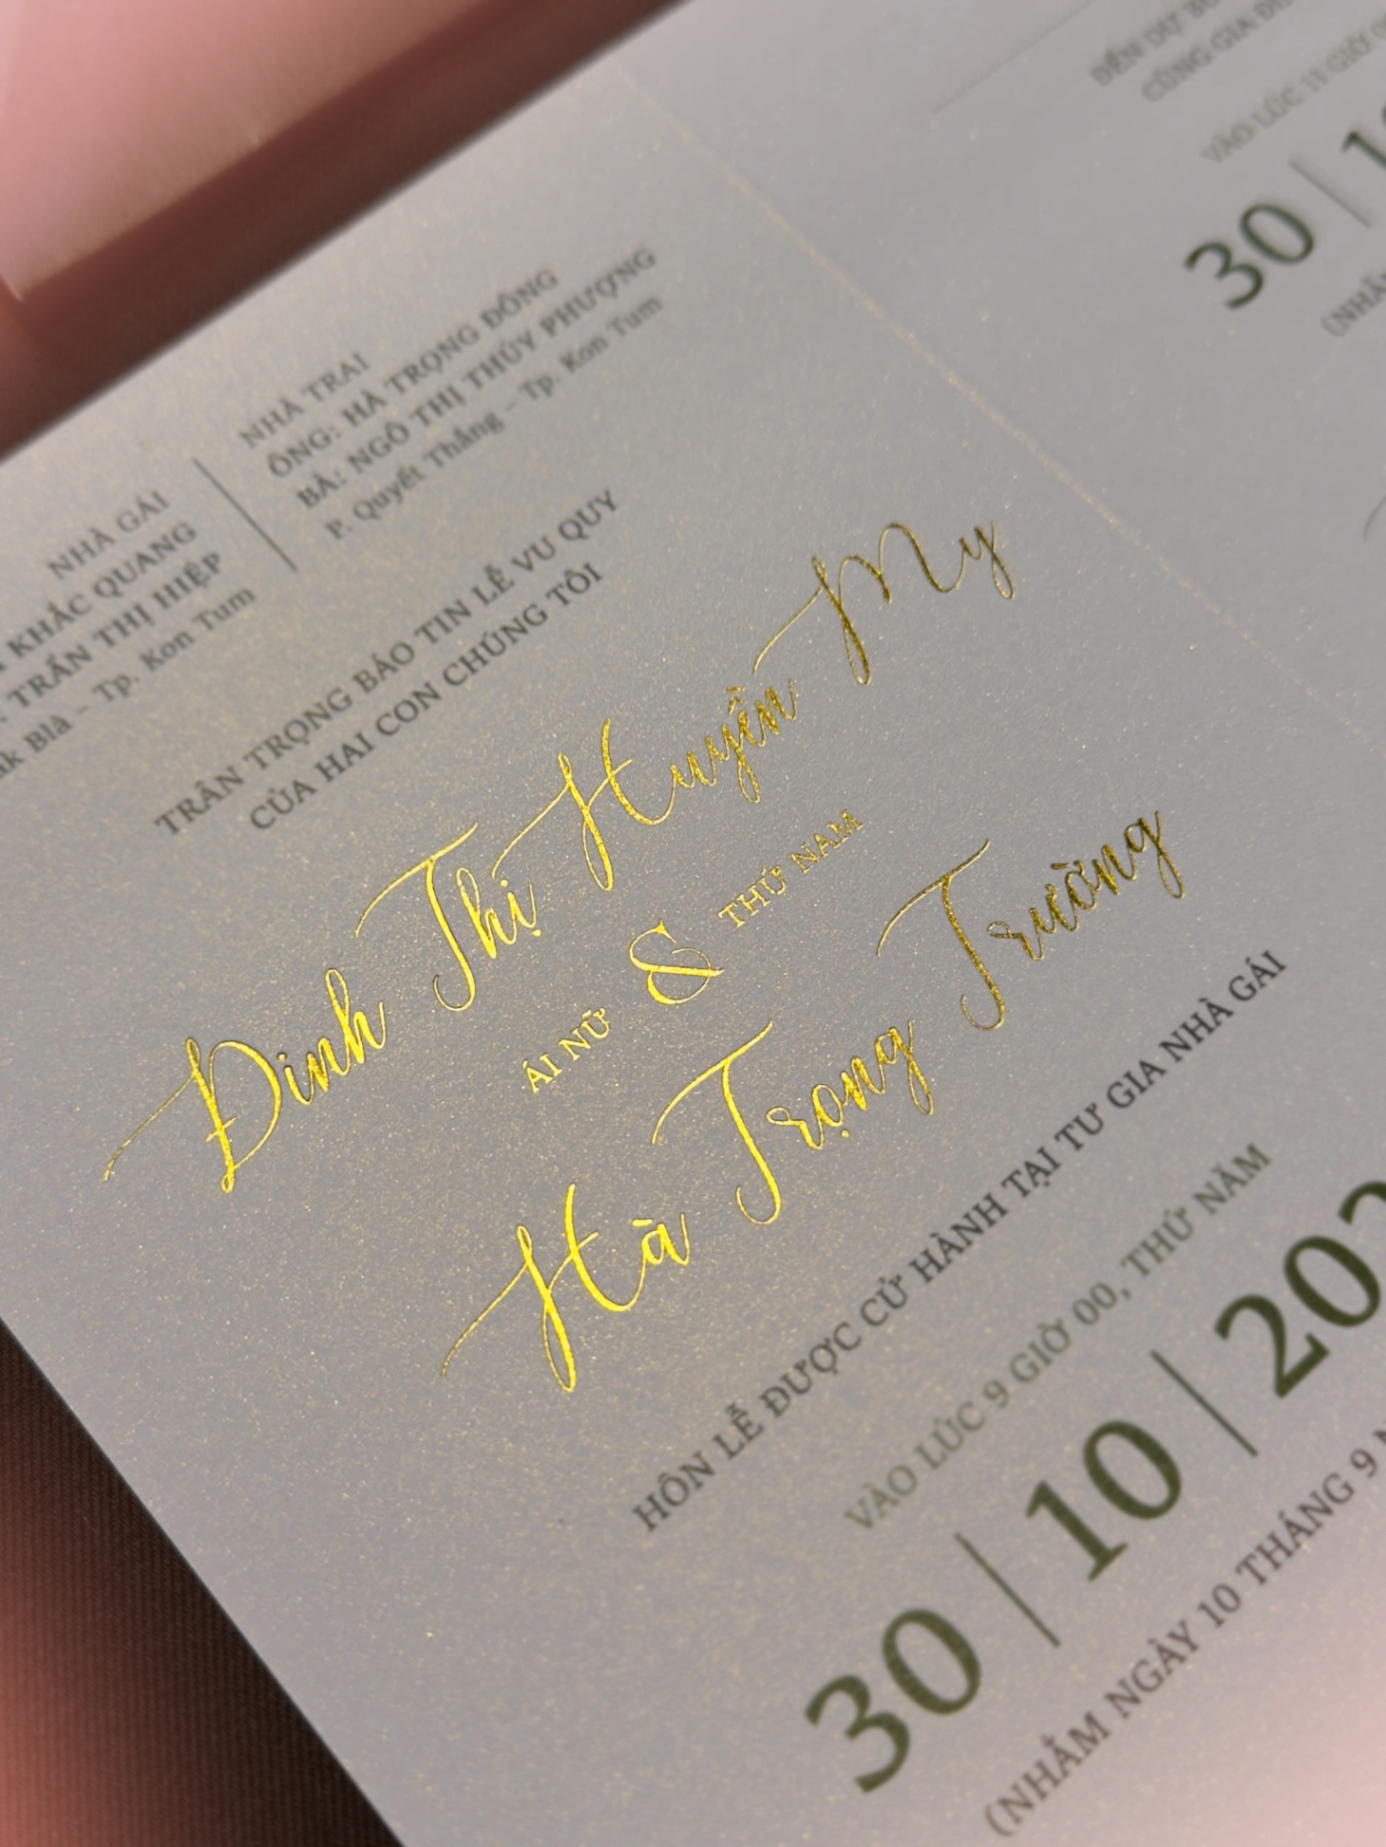 NHÀ GÁI
KHẮC QUANG
TRẦN THỊ HIỆP
Blà - Tp. Kon Tum
NHÀ TRAI
ÔNG: HÀ TRỌNG ĐÔNG
BÀ: NGÔ THỊ THÚY PHƯỢNG
P. Quyết Thắng - Tp. Kon Tum
TRÂN TRỌNG BÁO TIN LỄ VU QUY
CỦA HAI CON CHÚNG TÔI
Đinh Thị Huyền My
ÁI NỮ & THỨ NAM
Hà Trọng Trường
HÔN LỄ ĐƯỢC CỬ HÀNH TẠI TƯ GIA NHÀ GÁI
VÀO LÚC 9 GIỜ 00, THỨ NĂM
30 | 10 | 202
(NHẰM NGÀY 10 THÁNG 9
ĐẾN DỰ
CÙNG GIA
VÀO LÚC 11 GIỜ
30 | 1
(NHẰ